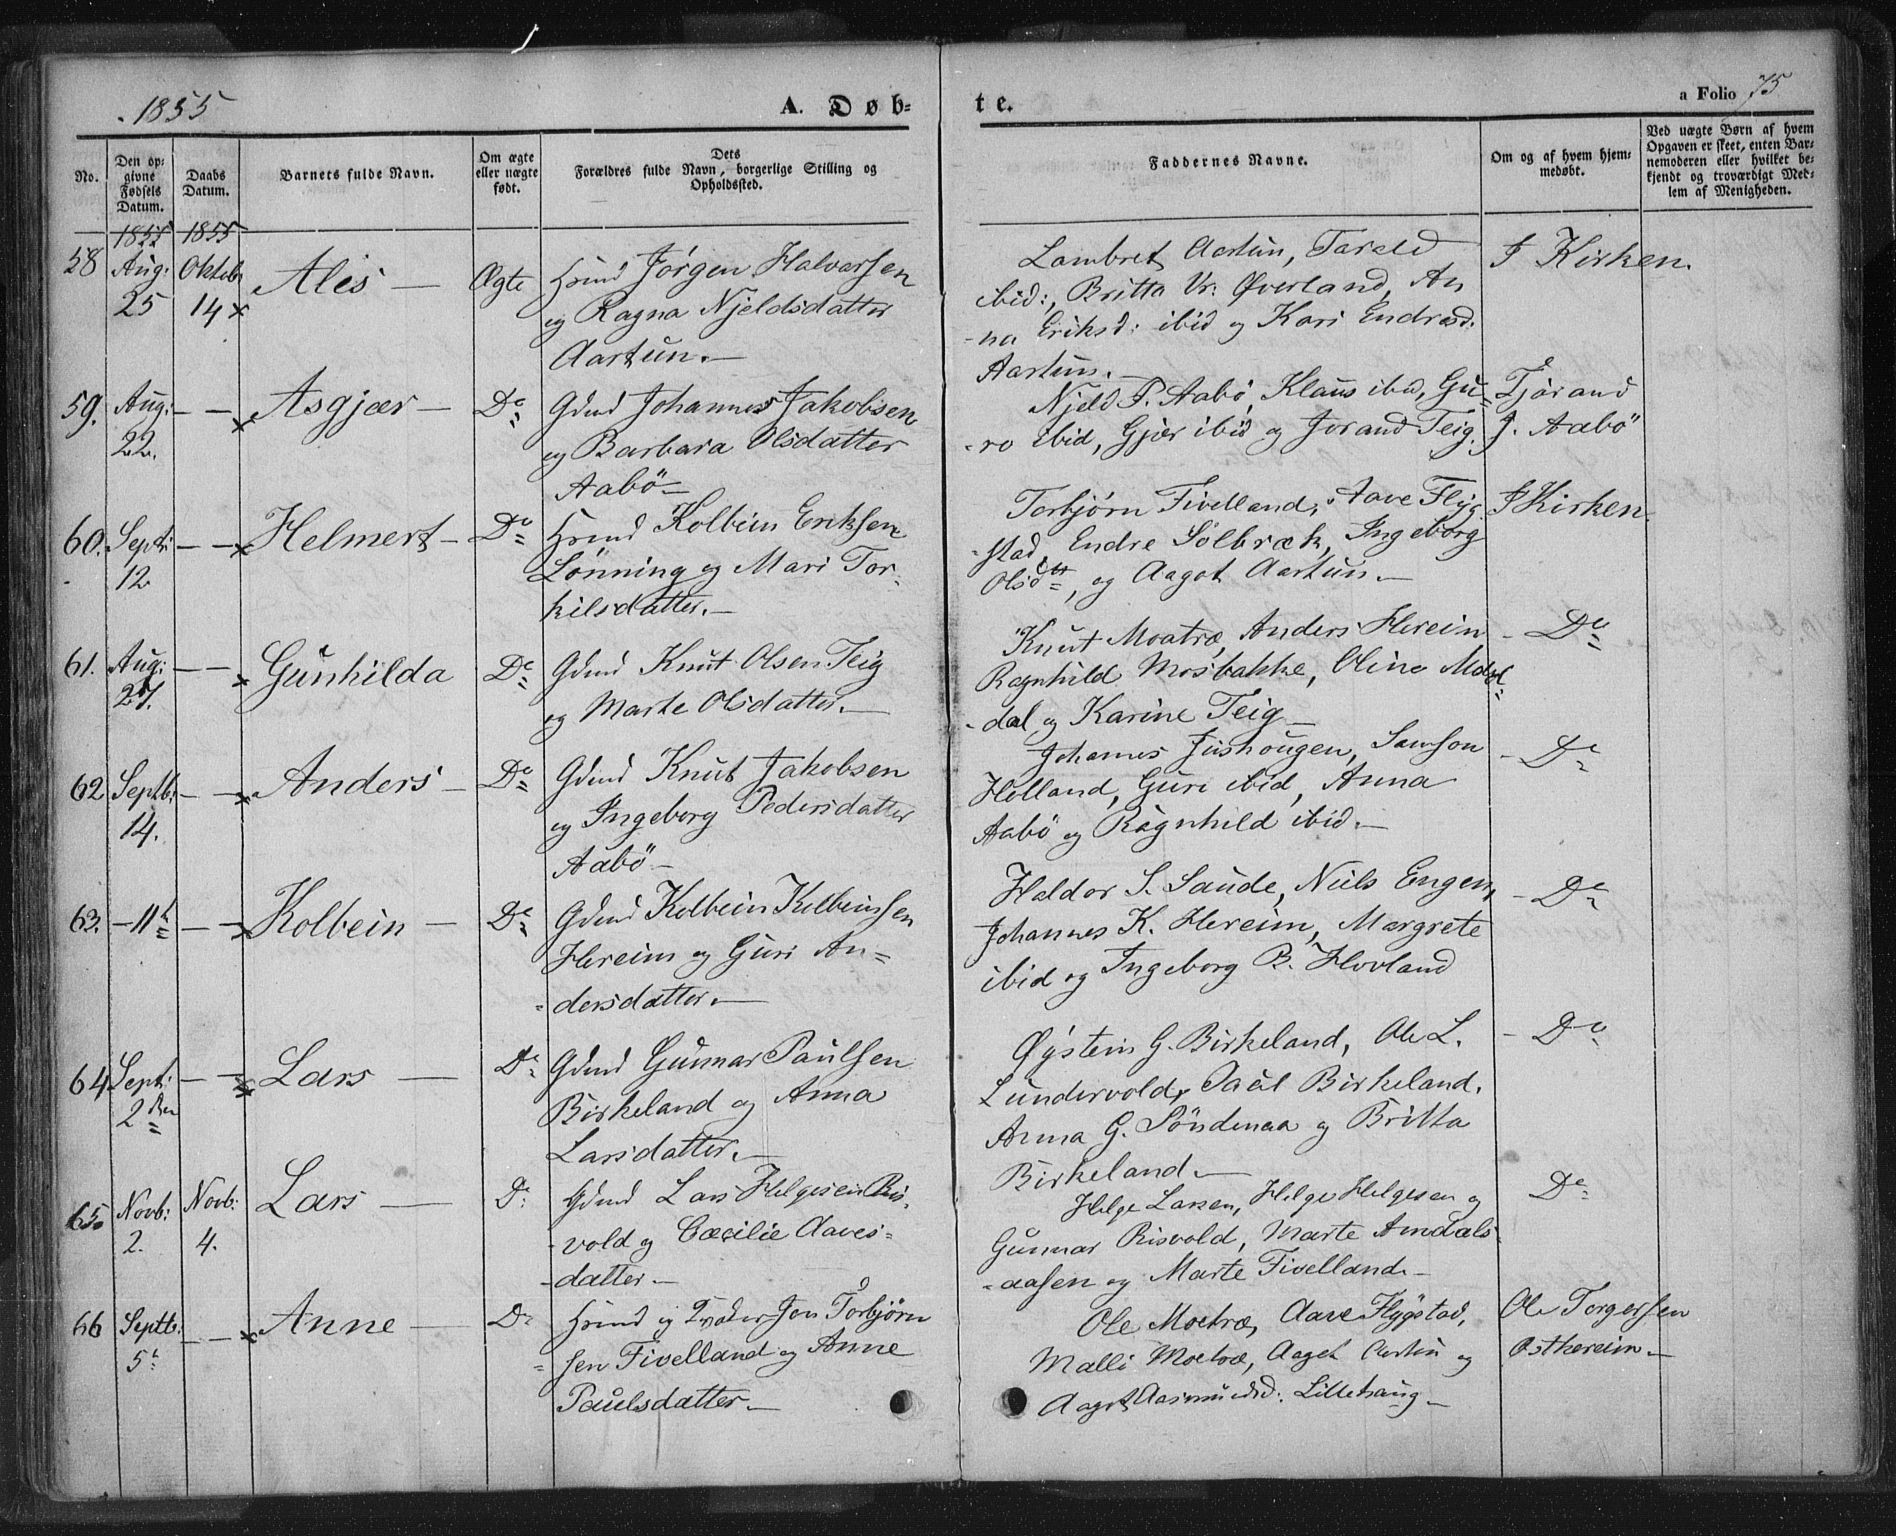 1855
A. Døb=
te.
a Folio 75
No.
Den op=
givne
Fødsels
Datum.
Daabs
Datum.
Barnets fulde Navn.
Om ægte
eller uægte
født.
Dets
Forældres fulde Navn, borgerlige Stilling og
Opholdssted.
Faddernes Navne.
Om og af hvem hjem=
medøbt.
Ved uægte Børn af hvem
Opgaven er skeet, enten Bar=
nemoderen eller hvilket be=
kjendt og troværdigt Med=
lem af Menigheden.
1855 1855
58 Aug: Oktob:
25 14 x
Ales —
Ægte
Hmd Jörgen Halvorsen
og Ragna Njeldsdatter
Aartun. —
Lambret Aartun, Tarald
ibid:, Britta Vr: Øverland, An
-na Eriksd: ibid og Kari Endresd:
Aartun. —
I Kirken.
59. Aug: — — x
22.
Asgjær —
Do
Gdmd Johannes Jakobsen
og Barbara Olsdatter
Aabö —
Njeld P. Aabö, Klaus ibid, Gu-
-ro ibid, Gjær ibid og Jorand Teig.
Tjörand
J. Aabö
60. Septr: — — x
12
Helmert —
Do
Hmd Kolbein Eriksen
Lønning og Mari Tor-
kilsdatter. —
Torbjørn Fivelland, Aave Flyg-
-stad, Endre Solbræk, Ingeborg
Olsdtr, og Aagot Aartun. —
I Kirken.
61. Aug: — — x
27.
Gunhilda
Do
Gdmd Knut Olsen Teig
og Marte Olsdatter. —
Knut Moatræ, Anders Hereim
Ragnhild Mosbakke, Oline
-dal og Karine Teig —
- Do
62 Septb: — — x
14.
Anders —
Do
Gdmd Knut Jakobsen
og Ingeborg Pedersdatter
Aabö —
Johannes Jushougen, Samson
Helland, Guri ibid, Anna
Aabö og Ragnhild ibid. —
- Do
63. — 11te — — x
Kolbein —
Do
Gdmd Kolbein Kolbeinsen
Hereim og Guri An=
-dersdatter. —
Haldor S. Saude, Niels Engen,
Johannes K. Hereim, Margrete
ibid og Ingeborg B. Hovland
- Do
64 Septr: — — x
2den
Lars —
Do
Gdmd Gunnar Paulsen
Birkeland og Anna
Larsdatter. —
Øystein G. Birkeland, Ole L.
Lundervold, Paul Birkeland.
Anna G. Söndenaa og Britta
Birkeland —
- Do
65. Novb: Novb:
2. 4.
Lars —
Do
Gdmd Lars Helgesen Ris-
-vold og Cæcilie Aaves=
-datter —
Helge Larsen, Helge Helgesen og
Gunnar Risvold, Marte Amdals-
-aasen og Marte Fivelland —
Do
66 Septb: — — x
5t:
Anne —
Do
Hmd og Torbjörn
-sen Fivelland og Anne
Paulsdatter. —
Ole Moetræ, Aave Flygstad,
Malli Moetræ, Aagot Aartun og
Aagot Aasmundsd: Lillehaug —
Ole Torgersen
Osthereim —